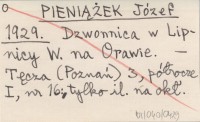 PIENIĄŻEK Józef
1929. Dzwonnica w Lip-
nicy W. na Orawie. —
Tęcza (Poznań) 3, półrocze
I, nr 16; tylko il. na okł.